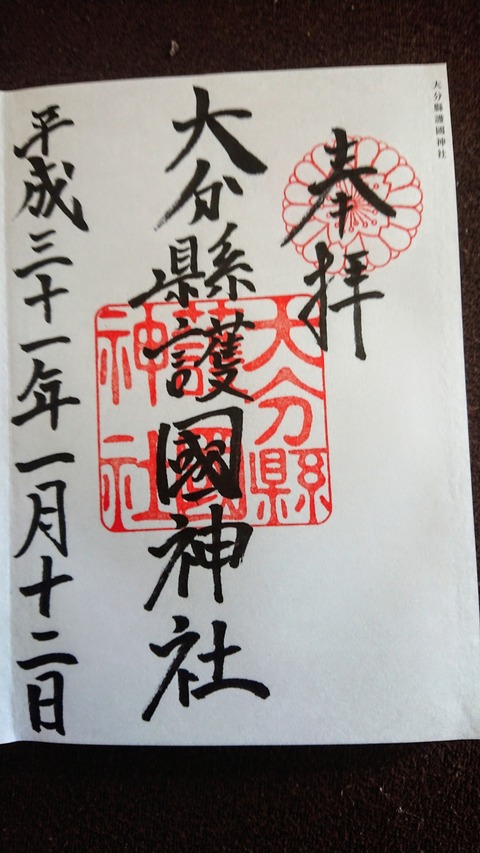 大分縣護國神社
奉拝
大分縣護國神社
大分縣護國神社
平成三十一年一月十二日